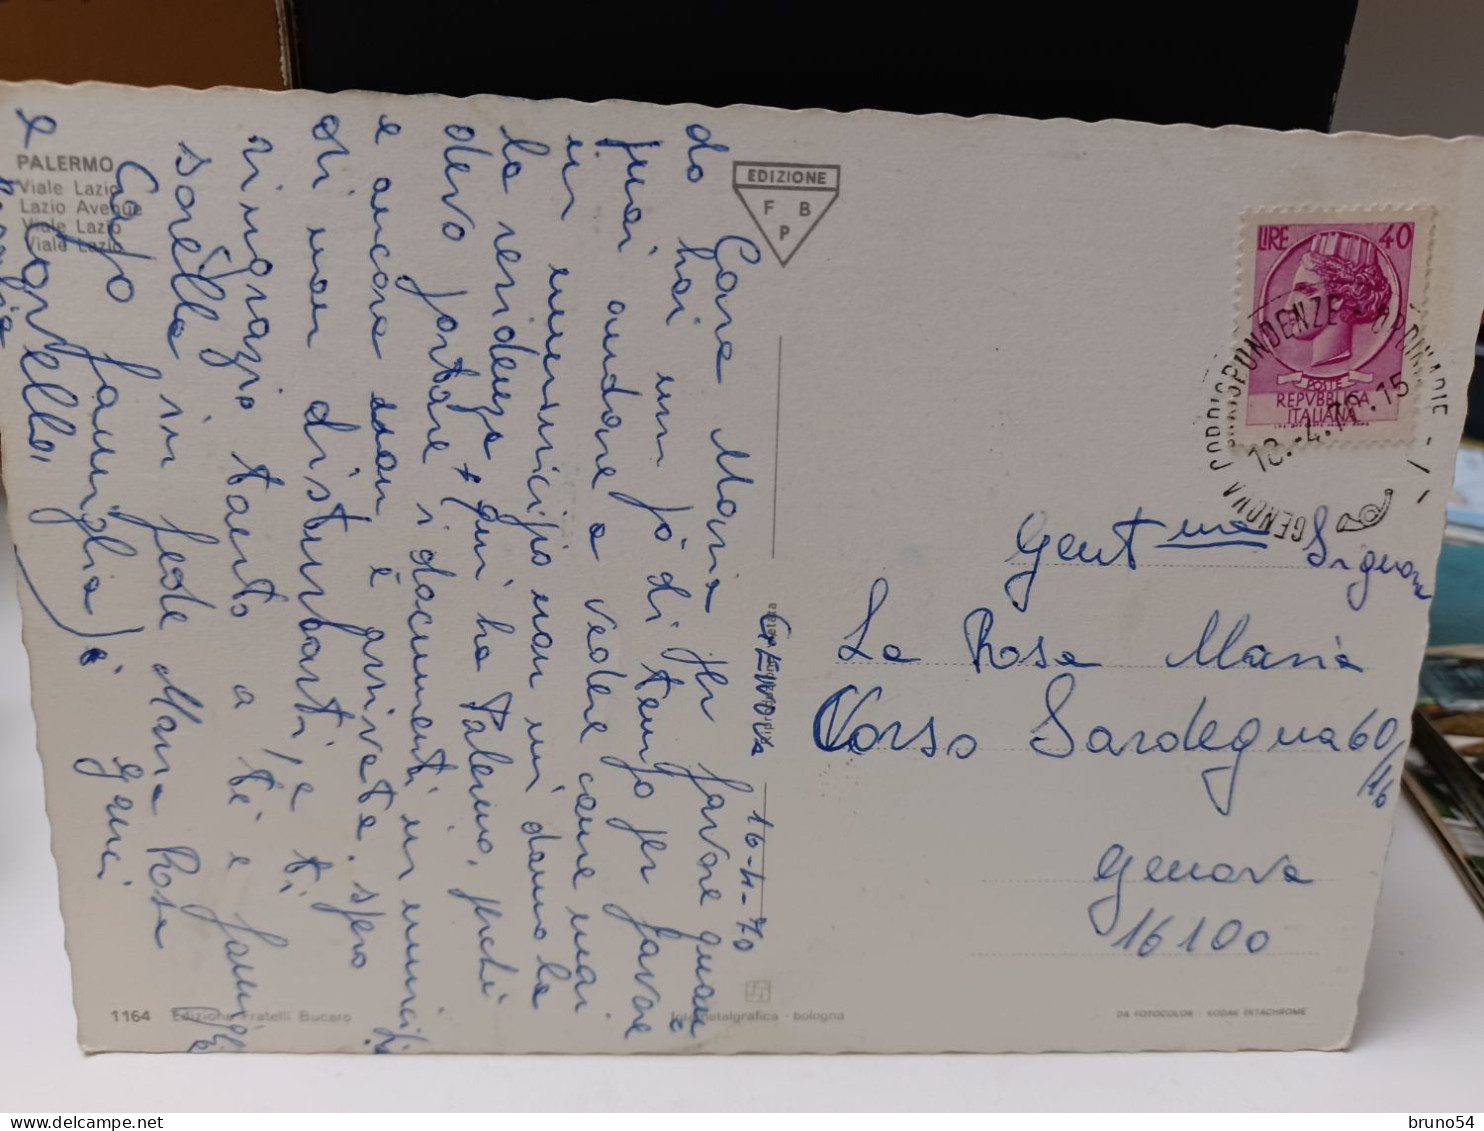 PALERMO
Viale Lazio
Lazio Avenue
Viale Lazio
Viale Lazio
EDIZIONE
F B
P
LIRE 40
POSTE
REPVBBLICA
ITALIANA
GENOVA CORRISPONDENZE ORDINARIE
18.-4.70.15
GENOVA 16-4-70
Cara Maria per favore quan
do hai un pò di tempo per favore
puoi andare a vedere come mai
in municipio non mi danno la
la residenza qui ha Palermo, perchè
devo portare i documenti in municipio
e ancora non è arrivata. spero
di non disturbarti, e ti
ringrazio tanto a tè e famiglia
sorella in fede Maria Rosa
Capo famiglia
e
Gent ma Signora
La Rosa Maria
Corso Sardegna 60/16
Genova
16100
1164 Edizione Fratelli Bucaro
fotometalgrafica - bologna
DA FOTOCOLOR - KODAK EKTACHROME
bruno54